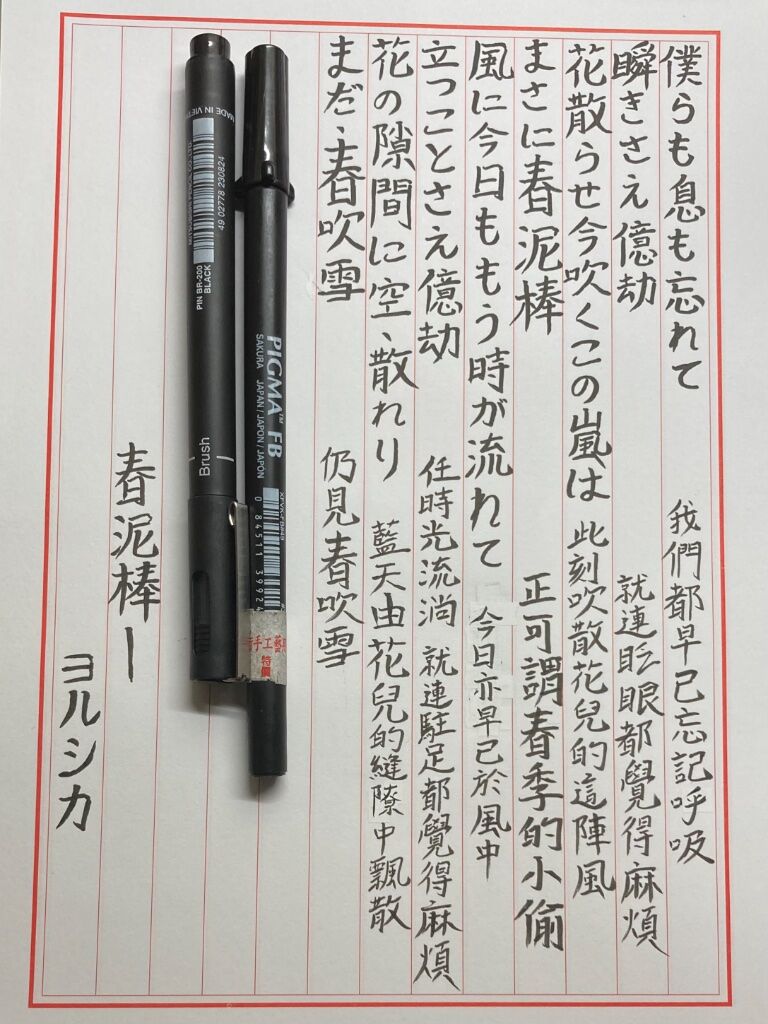 僕らも息も忘れて 我們都早已忘記呼吸
瞬きさえ億劫 就連眨眼都覺得麻煩
花散らせ今吹くこの嵐は 此刻吹散花兒的這陣風
まさに春泥棒 正可謂春季的小偷
風に今日ももう時が流れて 今日亦早已於風中
立つことさえ億劫 任時光流淌 就連駐足都覺得麻煩
花の隙間に空、散れり 藍天由花兒的縫隙中飄散
まだ、春吹雪 仍見春吹雪
PIGMA™ FB
SAKURA JAPAN/JAPON/JAPON
0 84511 3992
手工藝
特價
MADE IN VIETN
49 02778 230824
PIN BR-200
BLACK
Brush
春泥棒ー
ヨルシカ